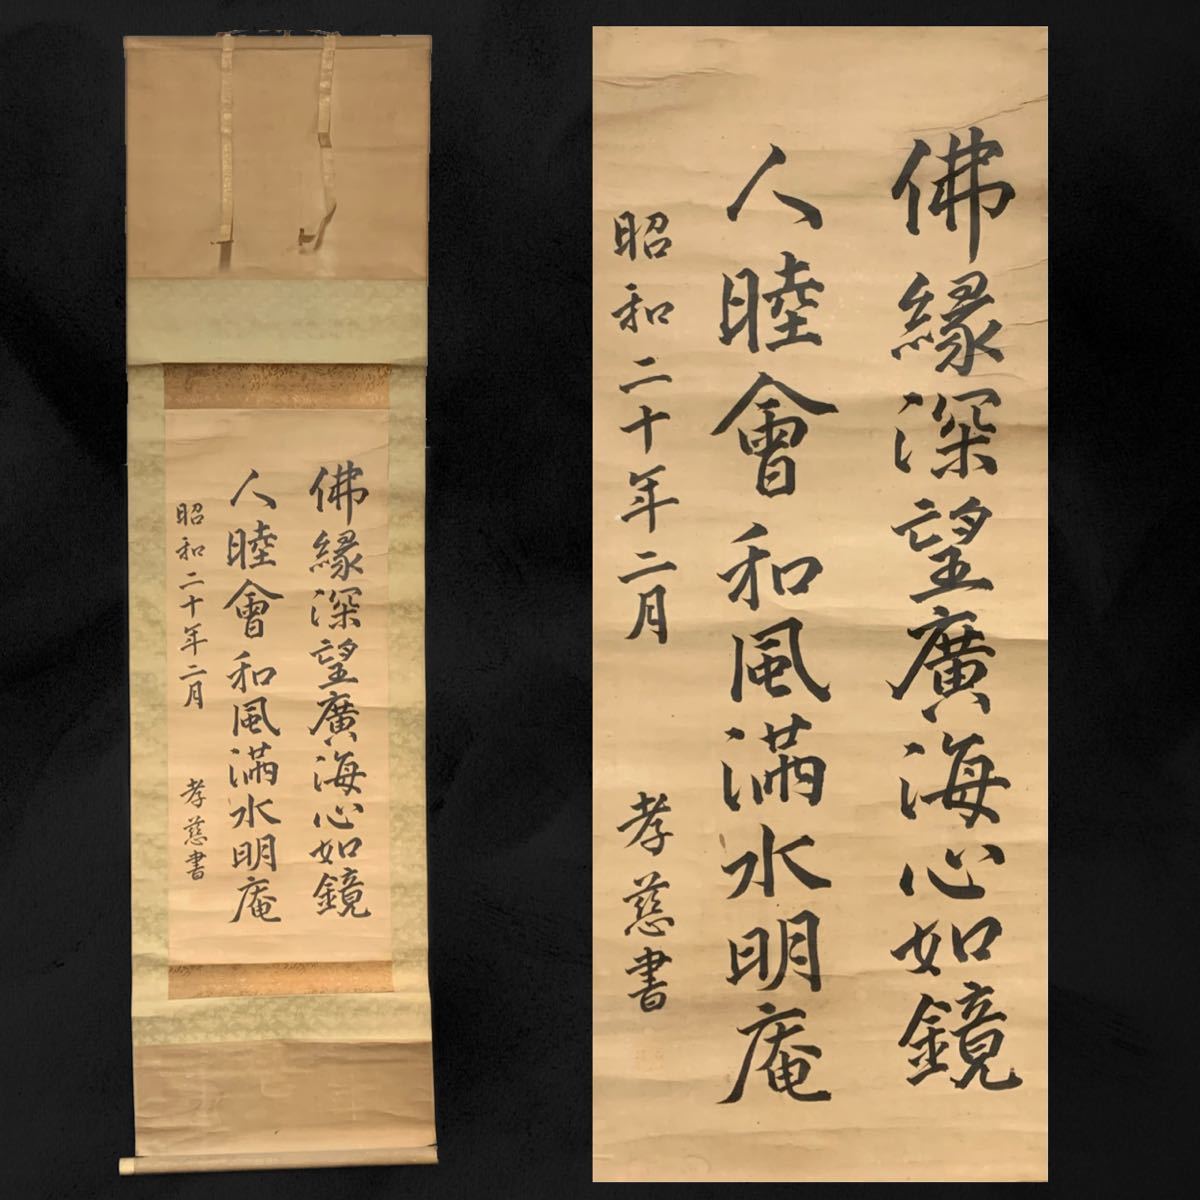 佛緣深望廣海心如鏡
人睦會和風滿水明庵
昭和二十年二月
孝慈書
佛緣深望廣海心如鏡
人睦會和風滿水明庵
昭和二十年二月
孝慈書